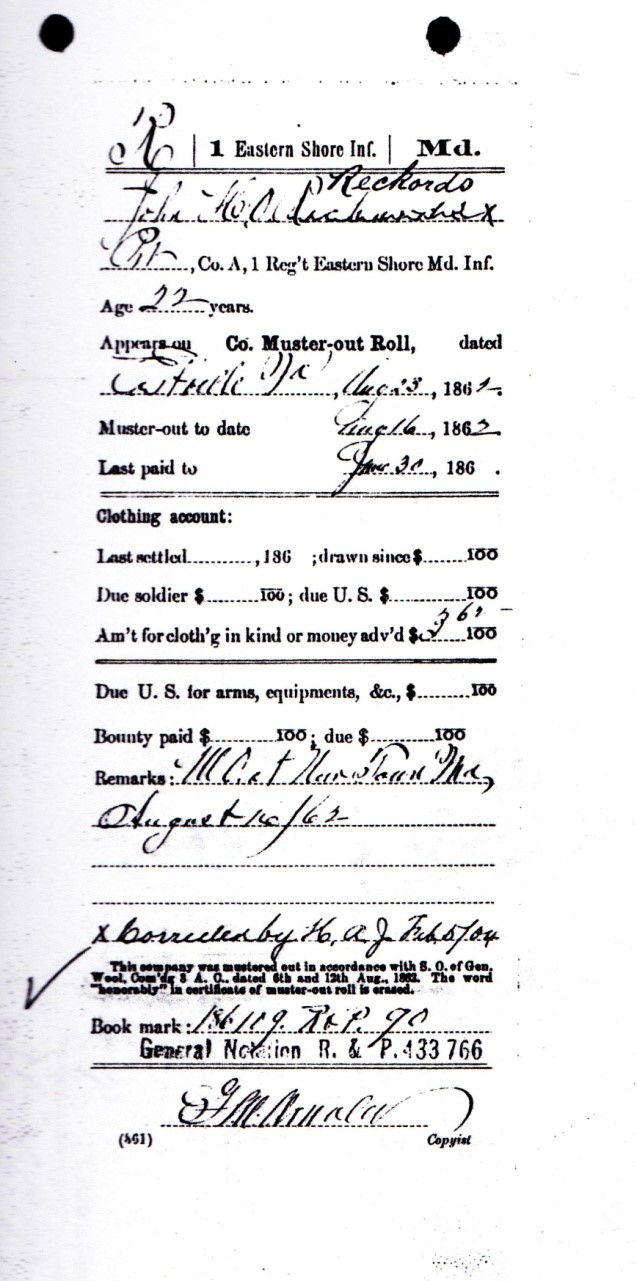 R | 1 Eastern Shore Inf. | Md.
Reckords
John H.
Pvt, Co. A, 1 Reg't Eastern Shore Md. Inf.
Age 22 years.
Appears on Co. Muster-out Roll, dated
, Aug 23, 1862.
Muster-out to date Aug 16, 1862.
Last paid to June 30, 186 .
Clothing account:
Last settled , 186 ; drawn since $ 100
Due soldier $ 100; due U. S. $ 100
Am't for cloth'g in kind or money adv'd $ 100
Due U. S. for arms, equipments, &c., $ 100
Bounty paid $ 100; due $ 100
Remarks: M.O. at Town Md,
August 16/62
x Corrected by H. A. J. Feb 5/04
This company was mustered out in accordance with S. O. of Gen.
Wool, Com'dg 8 A. C., dated 6th and 12th Aug., 1862. The word
"honorably" in certificate of muster-out roll is erased.
Book mark: R. & P. 90
General Notation R. & P. 433 766
Arnold
(861) Copyist